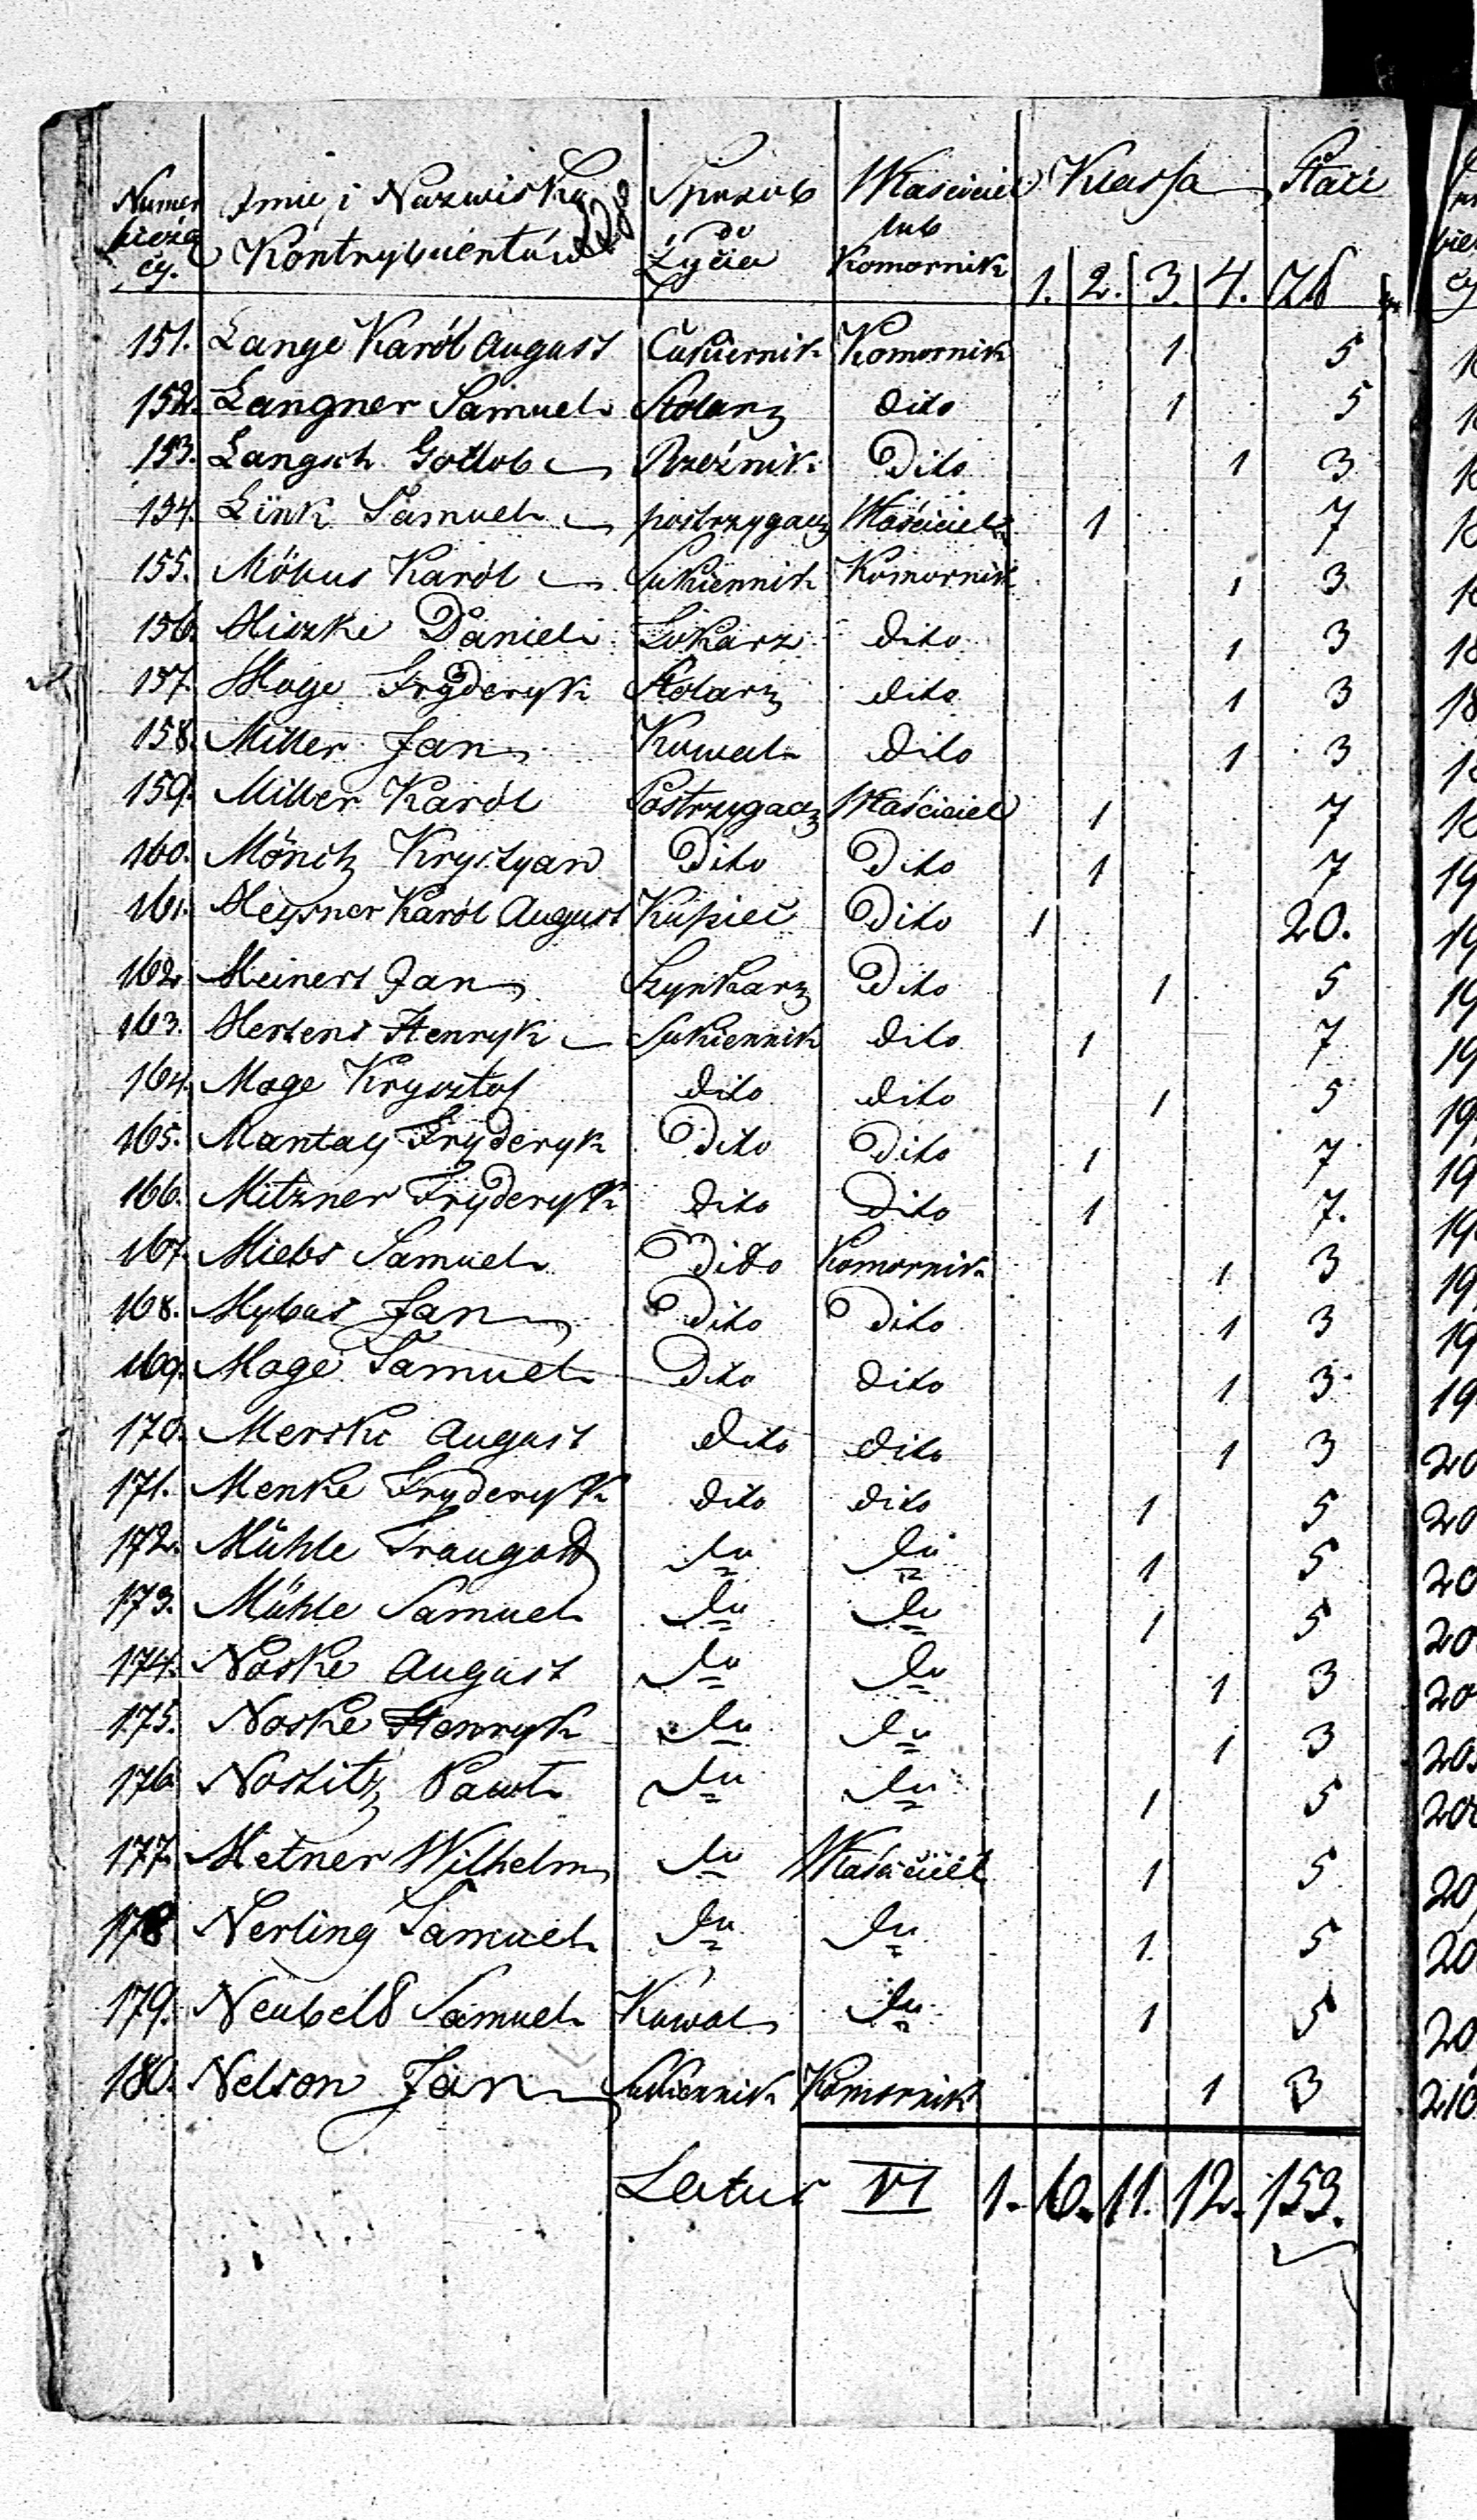 Numer Imie i Nazwiska Sposob Właściciel Klassa Płaci
bieżą Kontrybuentów do lub
cy. Życia Komornik 1. 2. 3. 4. Zł
151. Lange Karól August Cukiernik Komornik 1 5
152. Langner Samuel Stolarz dito 1 5
153. Langsch Gottlob Rzeźnik Dito 1 3
154. Link Samuel postrzygacz Właściciel 1 7
155. Möbus Karól Sukiennik Komornik 1 3
156. Miszke Daniel Tokarz dito 1 3
157. Moge Fryderyk Stolarz dito 1 3
158. Miller Jan Kowal dito 1 3
159. Miller Karól Postrzygacz Właściciel 1 7
160. Mönch Krystyan Dito Dito 1 7
161. Meysner Karól August Kupiec Dito 1 20.
162. Meinert Jan Szynkarz Dito 1 5
163. Mertens Henryk Sukiennik dito 1 7
164. Moge Krysztof dito dito 1 5
165. Mantay Fryderyk Dito Dito 1 7
166. Mitzner Fryderyk dito Dito 1 7.
167. Miebs Samuel Dito Komornik 1 3
168. Mybus Jan Dito Dito 1 3
169. Moge Samuel Dito dito 1 3
170. Merski August dito dito 1 3
171. Menke Fryderyk dito dito 1 5
172. Mühle Traugott do do 1 5
173. Mühle Samuel do do 1 5
174. Noske August do do 1 3
175. Noske Henryk do do 1 3
176. Nostitz Paweł do do 1 5
177. Metner Wilhelm do Właściciel 1 5
178 Nerling Samuel do do 1. 5
179. Neubeld Samuel Kowal do 1 5
180. Nelson Jan Sukiennik Komornik 1 3
Latus VI 1. 6. 11. 12. 153.